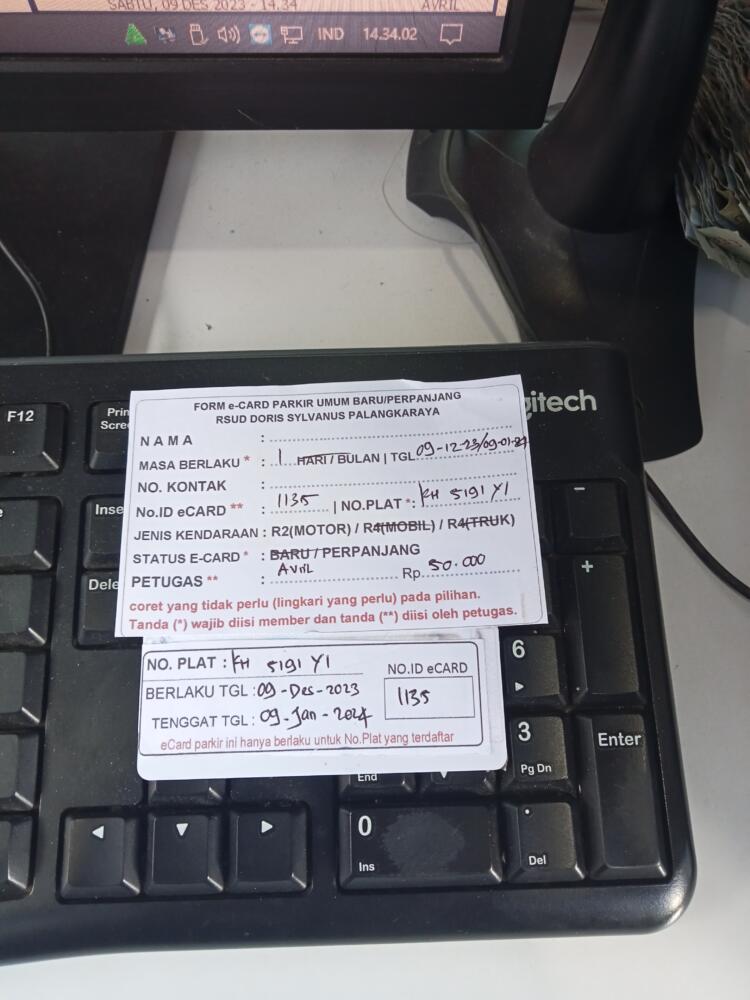 SABTU, 09 DES 2023 - 14.34 AVRIL
IND 14.34.02
gitech
F12
Prin
Scree
Inse
Dele
FORM e-CARD PARKIR UMUM BARU/PERPANJANG
RSUD DORIS SYLVANUS PALANGKARAYA
NAMA :
MASA BERLAKU * : 1 HARI / BULAN | TGL 09-12-23/09-01-24
NO. KONTAK :
No.ID eCARD ** : 1135 | NO.PLAT *: KH 5191 YI
JENIS KENDARAAN : R2(MOTOR) / R4(MOBIL) / R4(TRUK)
STATUS E-CARD * : BARU / PERPANJANG
PETUGAS ** : Avril Rp. 50.000
coret yang tidak perlu (lingkari yang perlu) pada pilihan.
Tanda (*) wajib diisi member dan tanda (**) diisi oleh petugas.
NO. PLAT : KH 5191 YI
NO.ID eCARD
1135
BERLAKU TGL : 09-Des-2023
TENGGAT TGL : 09-Jan-2024
eCard parkir ini hanya berlaku untuk No.Plat yang terdaftar
-
+
6
3
Pg Dn
Enter
End
0
Ins
.
Del